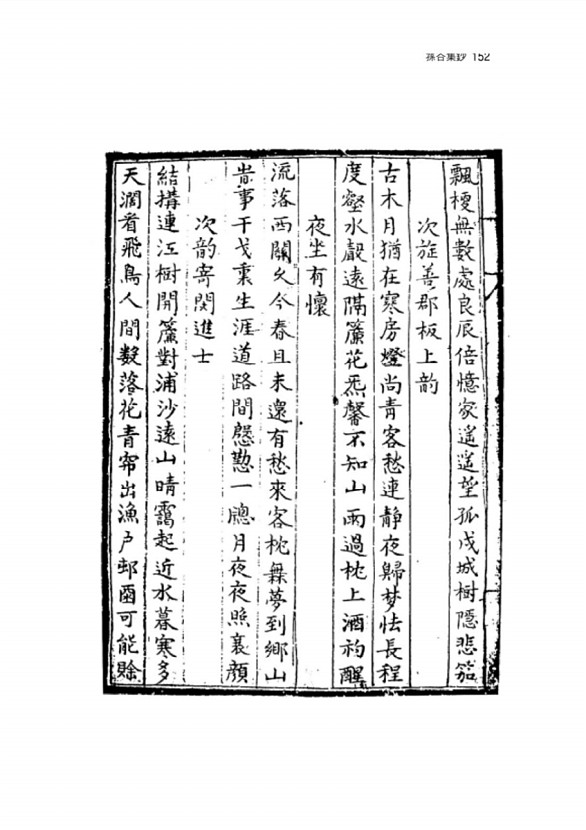 孫合集鈔 152
飄梗無數處良辰倍憶家遥遥望孤戍城樹隱悲笳
次旌善郡板上韵
古木月猶在寒房燈尚青客愁連静夜歸梦怯長程
度壑水聲遠隔簾花炁馨不知山雨過枕上酒初醒
夜坐有懷
流落西關久今春且未還有愁來客枕無夢到鄉山
峕事干戈裏生涯道路間慇懃一牎月夜夜照衰顔
次韵寄閔進士
結構連江樹開簾對浦沙遠山晴靄起近水暮寒多
天濶看飛鳥人間數落花青帘出漁户邨
可能賒